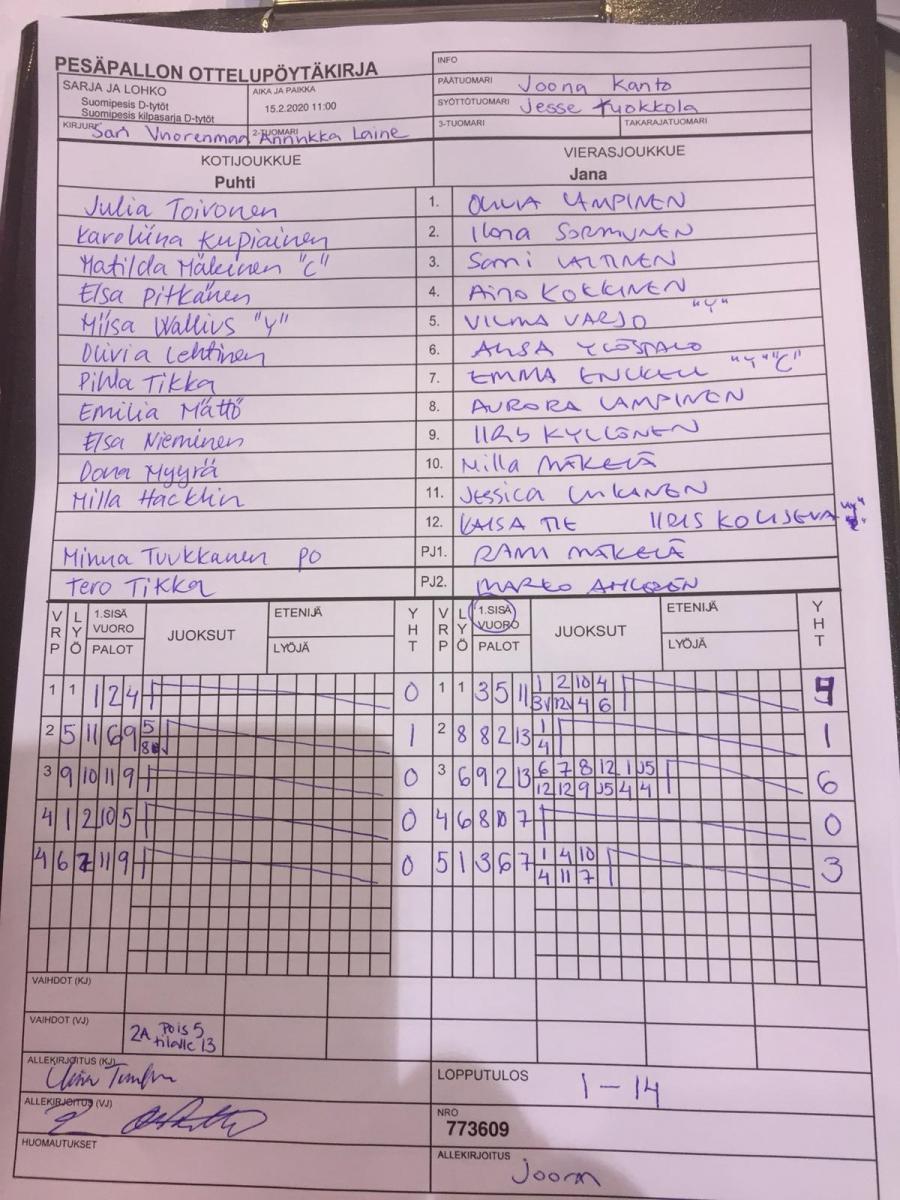 PESÄPALLON OTTELUPÖYTÄKIRJA
SARJA JA LOHKO
Suomipesis D-tytöt
Suomipesis kilpasarja D-tytöt
AIKA JA PAIKKA
15.2.2020 11:00
KIRJURI Sari Vuorenmaa
2-TUOMARI Annukka Laine
INFO
PÄÄTUOMARI Joona Kanto
SYÖTTÖTUOMARI Jesse
3-TUOMARI TAKARAJATUOMARI
KOTIJOUKKUE VIERASJOUKKUE
Puhti Jana
Julia Toivonen 1. OLIVIA LAMPINEN
Karoliina Kupiainen 2. Ilona SORMUNEN
Matilda Mäkinen "C" 3. Sami LAITINEN
Elsa Pitkänen 4. Aino KOKKINEN
Miisa Wallius "Y" 5. VILMA VARJO "Y"
Olivia Lehtinen 6. AHSA YLÖSTALO
Pihla Tikka 7. EMMA ENCKELL "Y" "C"
Emilia Mättö 8. AURORA LAMPINEN
Elsa Nieminen 9. IIRIS KYLLÖNEN
Oona Myyrä 10. Milla MÄKELÄ
Milla Hacklin 11. JESSICA
12. KAISA TIE IIRIS
Minna Tuukkanen PO PJ1. RAMI MÄKELÄ
Tero Tikka PJ2. MARKO AHLGREN
VRP LYÖ 1.SISÄ VUORO PALOT JUOKSUT ETENIJÄ LYÖJÄ YHT VRP LYÖ 1.SISÄ VUORO PALOT JUOKSUT ETENIJÄ LYÖJÄ YHT
1 1 1 2 4 0 1 1 3 5 11 1 2 10 4
4 6
2 5 11 6 9 5 1 2 8 8 2 13 1 1
8 4
3 9 10 11 9 0 3 6 9 2 13 6 7 8 12 1 5 6
12 12 9 5 4 4
4 1 2 10 5 0 4 6 8 7 0
4 6 11 9 0 5 1 3 6 7 1 4 10 3
4 11 7
VAIHDOT (KJ)
VAIHDOT (VJ) 2A Pois 5
tilalle 13
ALLEKIRJOITUS (KJ)
LOPPUTULOS 1 – 14
ALLEKIRJOITUS (VJ)
NRO
773609
HUOMAUTUKSET
ALLEKIRJOITUS